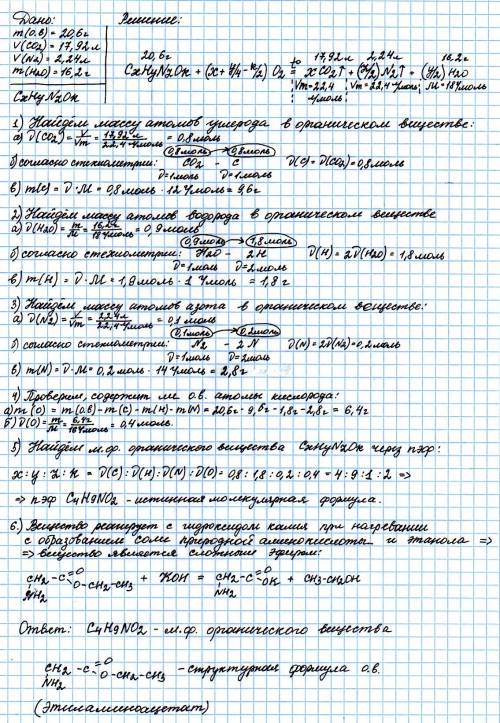 Дано:
Решение:
m(о.в) = 20,6г
V(CO2) = 17,92 л
V(N2) = 2,24л
m(H2O) = 16,2г
CxHyNzOк
20,6г 17,92л 2,24л 16,2г
CxHyNzOк + (x + y/4 - к/2) O2 = to x CO2↑ + (z/2) N2↑ + (y/2) H2O
Vm=22,4 л/моль Vm=22,4 л/моль M=18г/моль
1) Найдём массу атомов углерода в органическом веществе:
а) ν(CO2) = V/Vm = 17,92л/22,4 л/моль = 0,8моль
0,8моль → 0,8моль
б) согласно стехиометрии: CO2 - C ν(C) = ν(CO2) = 0,8моль
ν=1моль ν=1моль
в) m(C) = ν·M = 0,8 моль · 12 г/моль = 9,6г
2) Найдём массу атомов водорода в органическом веществе
а) ν(H2O) = m/M = 16,2г/18г/моль = 0,9моль
0,9моль → 1,8моль
б) согласно стехиометрии: H2O - 2H ν(H) = 2ν(H2O) = 1,8 моль
ν=1моль ν=2моль
в) m(H) = ν·M = 1,9моль · 1 г/моль = 1,8г
3) Найдём массу атомов азота в органическом веществе:
а) ν(N2) = V/Vm = 2,24л/22,4 л/моль = 0,1моль
0,1моль → 0,2моль
б) согласно стехиометрии: N2 - 2N ν(N) = 2ν(N2) = 0,2 моль
ν=1моль ν=2моль
в) m(N) = ν·M = 0,2 моль · 14 г/моль = 2,8г
4) Проверим, содержит ли о.в. атомы кислорода:
а) m(O) = m(о.в) - m(C) - m(H) - m(N) = 20,6г - 9,6г - 1,8г - 2,8г = 6,4г
Б) ν(O) = m/M = 6,4г/16г/моль = 0,4моль.
5) Найдём м.ф. органического вещества CxHyNzOк через пэф:
x:y:z:к = ν(C):ν(H):ν(N):ν(O) = 0,8:1,8:0,2:0,4 = 4:9:1:2 =>
=> пэф C4H9NO2 - истинная молекулярная формула.
6.) Вещество реагирует с гидроксидом калия при нагревании
с образованием соли природной аминокислоты и этанола =>
=> вещество является сложным эфиром:
CH2-C=O O-CH2-CH3 + KOH = CH2-C=O OK + CH3-CH2OH
NH2 NH2
Ответ: C4H9NO2 - м.ф. органического вещества
CH2-C=O O-CH2-CH3 - структурная формула о.в.
NH2
(Этиламиноацетат)